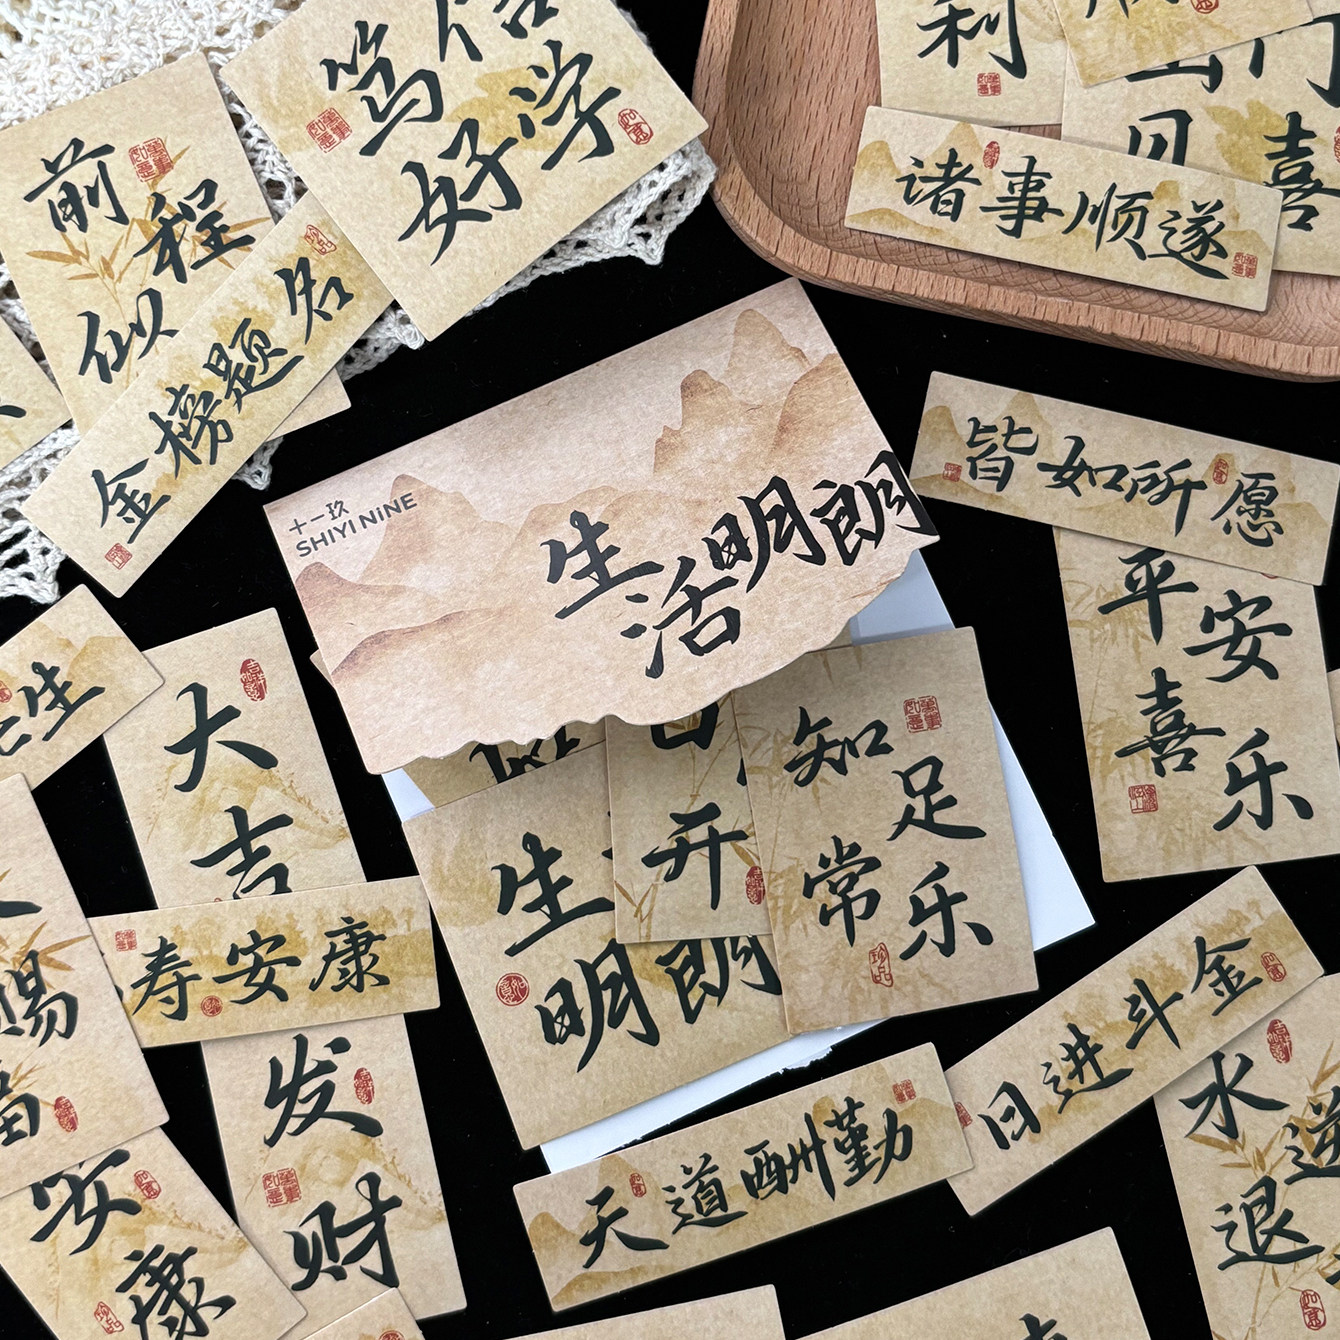 笃信
好学
前程
似
金榜题名
利
诸事顺遂
喜
皆如所愿
平安
喜乐
十一玖
SHIYI NINE
生活明朗
大吉
生
寿安康
发财
赐
福
安康
开
生
明朗
知足
常乐
日进斗金
天道酬勤
水逆
退